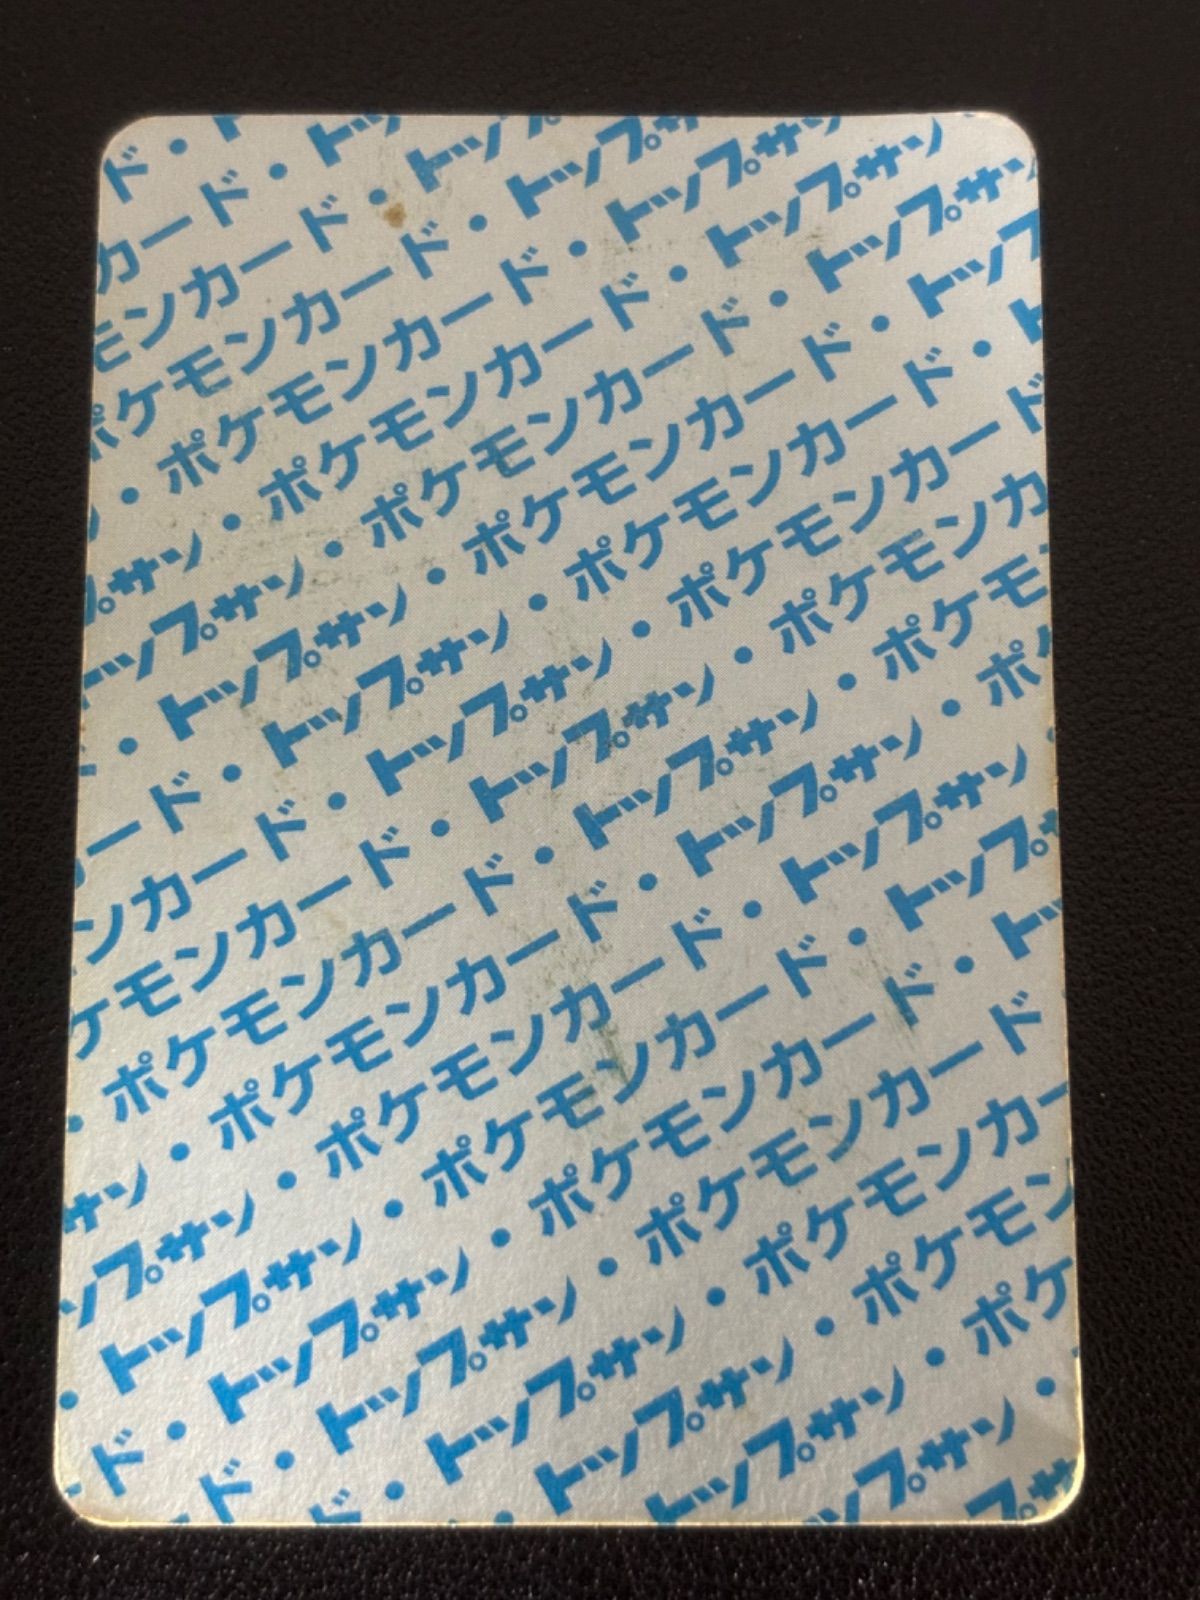 ド・ト
カード・トッ
モンカード・トップ
ポケモンカード・トップサ
・ポケモンカード・トップサン
ン・ポケモンカード・トップサン
プサン・ポケモンカード・トップサン
トップサン・ポケモンカード・トップ
・トップサン・ポケモンカード・ト
カード・トップサン・ポケモンカード
ンカード・トップサン・ポケモンカ
ケモンカード・トップサン・ポケモ
・ポケモンカード・トップサン・ポ
サン・ポケモンカード・トップサン・
ップサン・ポケモンカード・トップサン
・トップサン・ポケモンカード・トップサ
ド・トップサン・ポケモンカード・ト
ド・トップサン・ポケモンカード
ド・トップサン・ポケモンカー
トップサン・ポケモン
トップサン・ポケ
トップサン・
プサン
プサ